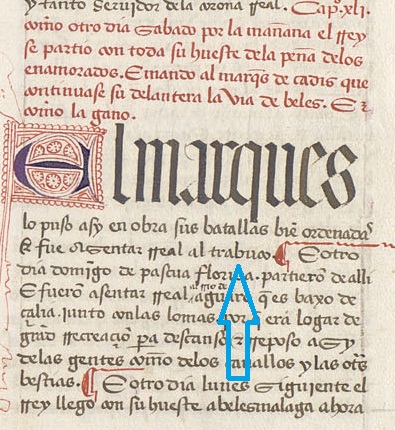 y tanto seruidor de la corona rreal. Capº. xli.
como otro dia sabado por la mañana el rrey
se partio con toda su hueste de la peña de los
enamorados. E mando al marqs de cadis que
continuase su delantera la via de beles. E
como la gano.
El marques
lo puso asy en obra sus batallas biē ordenadas
& fue asentar rreal al trabuco. E otro
dia domigo de pascua florida. partierō de alli
E fuerō asentar rreal al rrio de aguaro q̄ es baxo de
calia. junto con las lomas era logar de
grād rrecreaçiō pa descanso & rreposo asy
de las gentes como de los cauallos y las otrs
bestias. E otro dia lunes siguiente el
rrey llego con su hueste a belesmalaga ahora